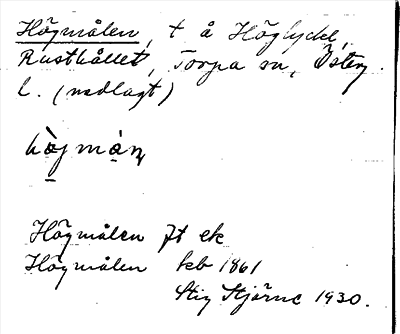 Högmålen, t å Höglycke,
Rusthållet, Torpa sn, Österg.
l. (nedlagt)
Högmålen Jt ek
Högmålen kb 1861
Stig Stjärne 1930.